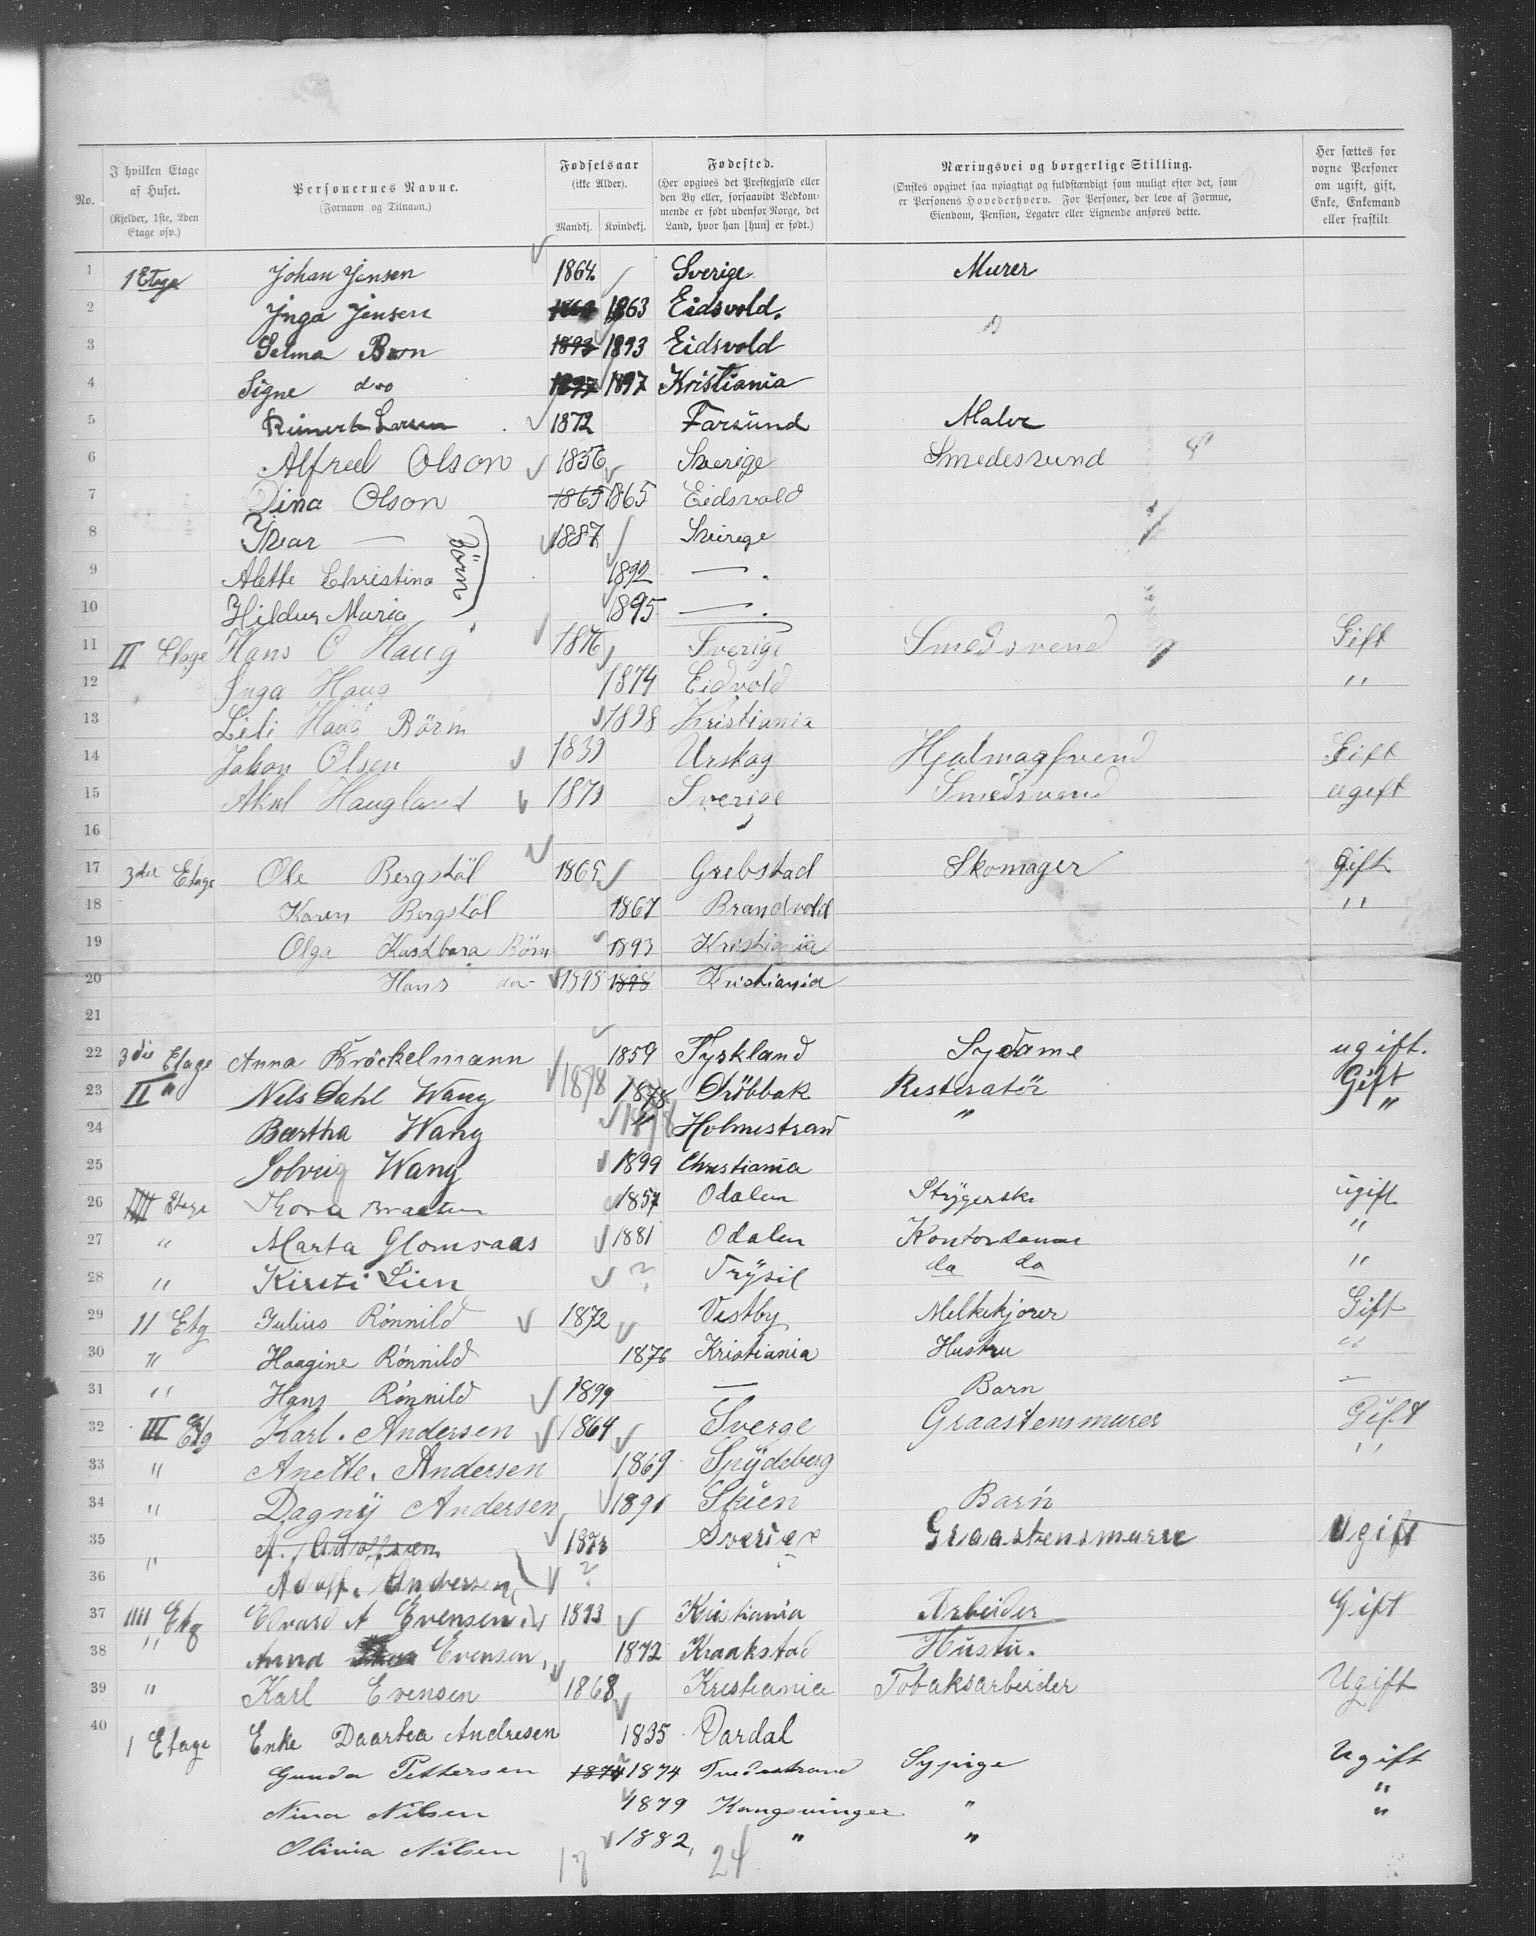 No. | I hvilken Etage af Huset. (Kjelder, 1ste, 2den Etage osv.) | Personernes Navne. (Fornavn og Tilnavn.) | Fødselsaar (ikke Alder). Mandkj. Kvindekj. | Fødested. (Her opgives det Prestegjæld eller den By eller, forsaavidt Vedkommende er født udenfor Norge, det Land, hvor han [hun] er født.) | Næringsvei og borgerlige Stilling. (Ønskes opgivet saa nøiagtigt og fuldstændigt som muligt efter det, som er Personens Hovederhverv. For Personer, der leve af Formue, Eiendom, Pension, Legater eller Lignende anføres dette. | Her sættes for voxne Personer om ugift, gift, Enke, Enkemand eller fraskilt.
1 1 Etage Johan Jensen 1864 Sverige Murer
2 Inga Jensen 1863 Eidsvold.
3 Selma Barn 1893 1893 Eidsvold
4 Signe do 1897 1897 Kristiania
5 Reinert Larsen 1872 Farsund Maler
6 Alfred Olson 1856 Sverige Smedesvend
7 Dina Olson 1865 1865 Eidsvold
8 Ivar — 1887 Sverige
Börn
9 Alette Christina 1892 —
10 Hildur Maria 1895 —
11 II Etage Hans O Haug 1876 Sverige Smedsvend Gift
12 Inga Haug 1874 Eidvold "
13 Lili Haug Börn 1898 Kristiania
14 Jakon Olsen 1839 Urskag Hjulmagsvend Gift
15 Aksel Haugland 1879 Sverige Smedsvend ugeft
16
17 3die Etage Ole Bergstöl 1865 Grebstad Skomager gift
18 Karen Bergstöl 1867 Brandvold "
19 Olga Barn 1893 Kristiania
20 Hans do 1895 1898 Kristiania
21
22 3die Etage Anna Bröckelmann 1859 Tyskland Sydame ugift.
23 II " Nils Dahl Wang 1878 1878 Dröbbak Restøratör Gift
24 Bærtha Wang 1878 Holmestrand " "
25 Solveig Wang 1899 Christiania
26 IIII Etage Thora Braaten 1857 Odalen Strygerske ugift
27 " Marta Glomsaas 1881 Odalen Kontordame "
28 " Kirsti Lien ? Trysil do do "
29 II Etg Julius Rønnild 1872 Vestby Melkekjører Gift
30 " Haagine Rønnild 1876 Kristiania Hustru "
31 " Hans Rønnild 1899 — Barn —
32 III Etg Karl. Andersen 1864 Sverge Graastensmurer Gift
33 " Anette. Andersen 1869 Spydeberg "
34 " Dagny Andersen 1891 Skien Barn
35 " A. Adolfsen 1873 Sverige Graastensmurer Ugift
36 Adolf. Andersen ?
37 IIII Etg Edvard A Evensen 1893 Kristiania Arbeider Gift
38 " Anna Evensen, 1872 Kraakstad Hustu.
39 " Karl Evensen 1868 Kristiania Tobaksarbeider Ugift
40 1 Etage Enke Daartea Andresen 1835 Vardal
Gunda Pettersen 1874 1874 Tvedestrand Sypige Ugift
Nina Nilsen 1879 Kongsvinger " "
Olivia Nilsen 1882, " " "
24